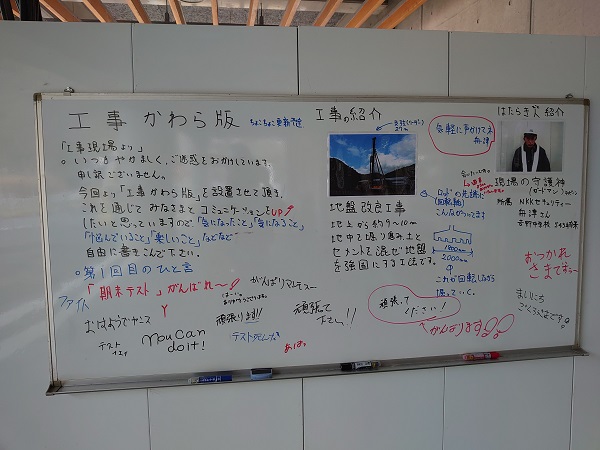 工事かわら版 ちょこちょこ更新予定
「工事現場より」
○いつもやかましく、ご迷惑をおかけしています。
申し訳ございません。
今回より「工事かわら版」を設置させて頂き、
これを通じてみなさまとコミュニケーションをUP
したいと思っていますので「気になったこと」「気になること」
「悩んでいること」「楽しいこと」などなど
自由に書きこんで下さい。
○第1回目のひと言
「期末テスト」がんばれ～!
ファイト
おはようでヤンス
テスト
You Can
do it!
がんばりマレデュー
頑張ります!!
頑張って
下さい!!
工事の紹介
27m
地盤改良工事
地上から約9～10m
地中を掘り進み土と
セメントを混ぜ地盤
を強固にする工法です。
頑張って
ください!
がんばります
気軽に声かけてネ
舟津
ロッドの先端に
こんなのがつきます
1600mm
2000mm
これが回転しながら
掘っていく。
はたらき人紹介
現場の守護神
(ガードマン)
所属 NKKセキュリティー
舟津さん
おつかれ
さまですぅ～
まいにち
ごくろうさまです。